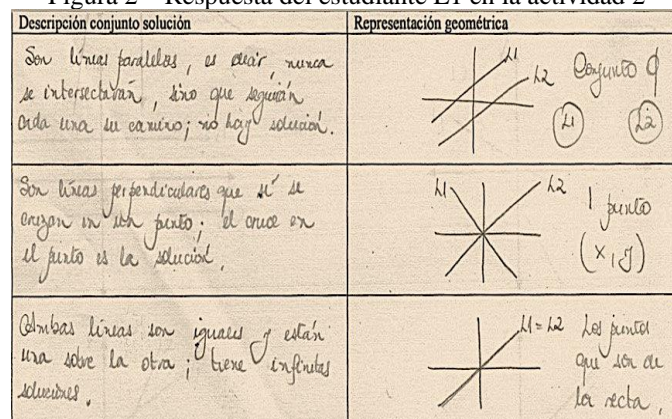 Figura 2 – Respuesta del estudiante E1 en la actividad 2
Descripción conjunto solución
Representación geométrica
Son líneas paralelas, es decir, nunca
se intersectarán, sino que seguirán
cada una su camino; no hay solución.
L1
L2
Conjunto ϕ
L1
L2
Son líneas perpendiculares que sí se
cruzan en un punto; el cruce en
el punto es la solución.
L1
L2
1 punto
(x, y)
Ambas líneas son iguales y están
una sobre la otra; tiene infinitas
soluciones.
L1 = L2
Los puntos
que son de
la recta.